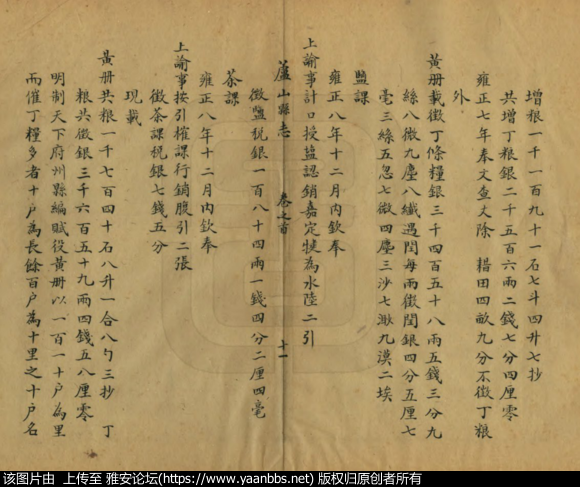 增粮一千一百九十一石七斗四升七抄
共增丁粮銀二千五百六兩二錢七分四厘零
雍正七年奉文查丈除 耤田四畝九分不徵丁粮
外
黃册載徵丁條糧銀三千四百五十八兩五錢三分九
絲八微九塵八纖遇閏每兩徵閏銀四分五厘七
毫三絲五忽七微四塵三沙七渺九漠二埃
鹽課
雍正八年十二月內欽奉
上諭事計口授鹽認銷嘉定犍為水陸二引
蘆山縣志 卷之首 十一
徵鹽税銀一百八十四兩一錢四分二厘四毫
茶課
雍正八年十二月內欽奉
上諭事按引榷課行銷腹引二張
徵茶課税銀七錢五分
現載
黃册共粮一千七百四十石八升一合八勺三抄 丁
粮共徵銀三千六百五十九兩四錢五八厘零
明制天下府州縣編賦役黃册以一百一十户為里
而催丁糧多者十户為長餘百户為十里之十户名
该图片由 上传至 雅安论坛(https://www.yaanbbs.net) 版权归原创者所有